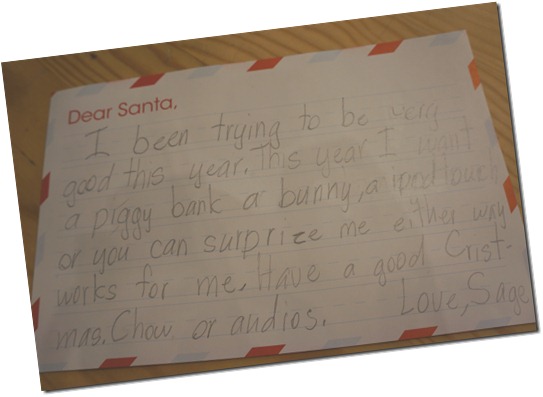 Dear Santa,
I been trying to be very
good this year. This year I want
a piggy bank a bunny, a ipod touch
or you can surprize me either way
works for me. Have a good Crist-
mas. Chow or audios. Love, Sage